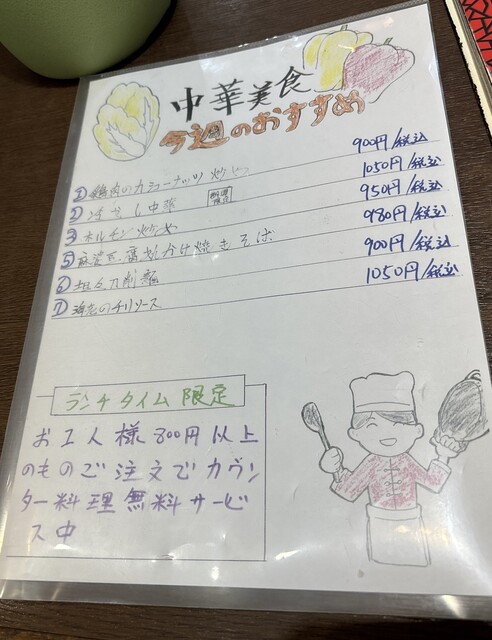 中華美食
今週のおすすめ
① 鶏肉のカシューナッツ炒め 900円/税込
② 冷やし中華 期間限定 1050円/税込
③ ホルモン炒め 950円/税込
⑤ 麻婆豆腐 焼きそば 980円/税込
⑥ 刀削麺 900円/税込
⑦ 海老のチリソース 1050円/税込
ランチタイム限定
お1人様800円以上
のものご注文でカウン
ター料理無料サービ
ス中